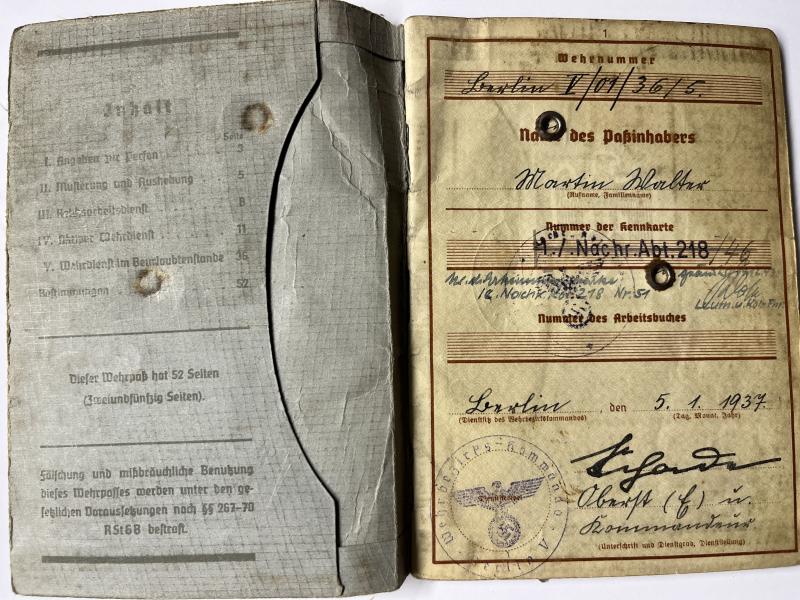 Inhalt
Seite
I. Angaben zur Person 3
II. Musterung und Aushebung 5
III. Reichsarbeitsdienst 8
IV. Aktiver Wehrdienst 11
V. Wehrdienst im Beurlaubtenstande 36
Bestimmungen 52
Dieser Wehrpaß hat 52 Seiten
(Zweiundfünfzig Seiten).
Fälschung und mißbräuchliche Benutzung
dieses Wehrpasses werden unter den ge-
setzlichen Voraussetzungen nach §§ 267-70
RStGB bestraft.
1
Wehrnummer
Berlin V/01/36/5.
Name des Paßinhabers
Martin Walter
(Rufname, Familienname)
Nummer der Kennkarte
1./Nachr.Abt.218/46
218 Nr. 51
Nummer des Arbeitsbuches
Berlin, den 5. 1. 1937.
(Dienstsitz des Wehrbezirkskommandos) (Tag, Monat, Jahr)
Wehrbezirks-Kommando
Schade
Oberst (E) u.
Kommandeur
(Unterschrift und Dienstgrad, Dienststellung)